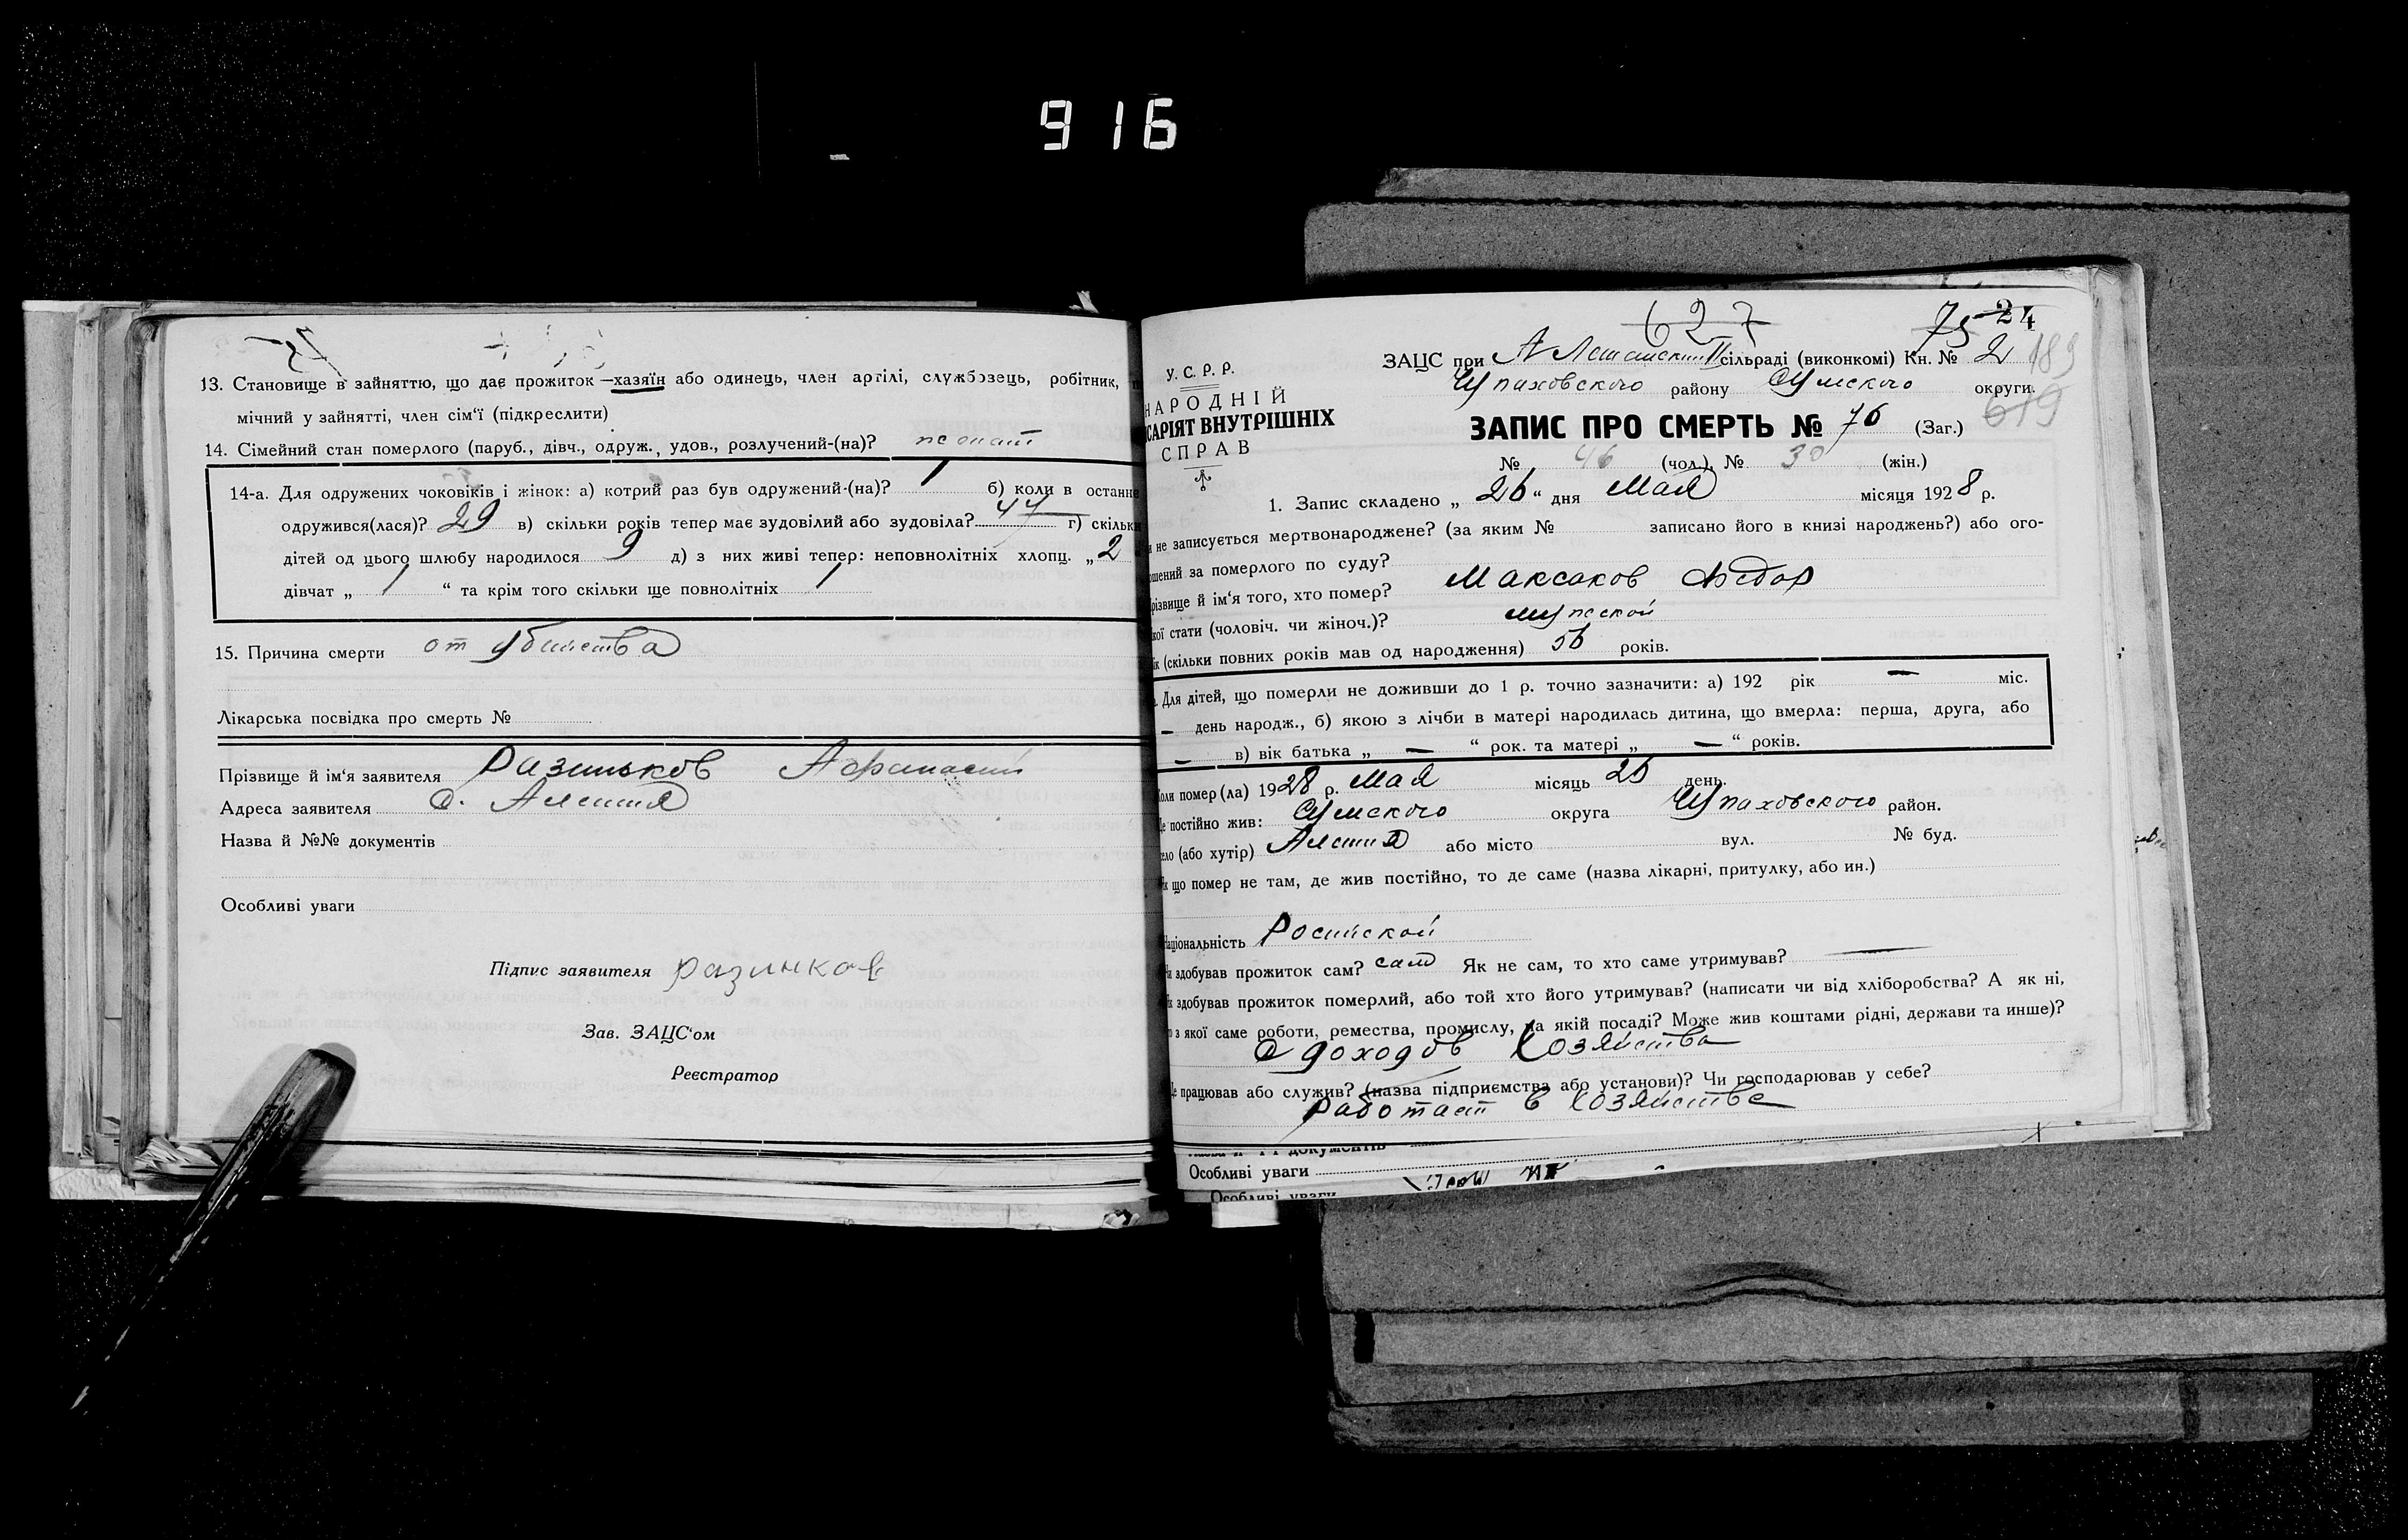 916
13. Становище в зайняттю, що дає прожиток —хазяїн або одинець, член артілі, службовець, робітник,
мічний у зайнятті, член сім'ї (підкреслити)
14. Сімейний стан померлого (паруб., дівч., одруж., удов., розлучений-(на)?
14-а. Для одружених чоковіків і жінок: а) котрий раз був одружений-(на)? 1 б) коли в останнє
одружився(лася)? 29 в) скільки років тепер має зудовілий або зудовіла? 44 г) скільки
дітей од цього шлюбу народилося 9 д) з них живі тепер: неповнолітніх хлопц. „ 2
дівчат „ 1 “ та крім того скільки ще повнолітніх 1
15. Причина смерти от убийства
Лікарська посвідка про смерть №
Прізвище й ім'я заявителя Разиньков Афанасий
Адреса заявителя с.
Назва й №№ документів
Особливі уваги
Підпис заявителя Разинков
Зав. ЗАЦС'ом
Реєстратор
627
75 24
У. С. Р. Р.
НАРОДНІЙ
САРІЯТ ВНУТРІШНІХ
СПРАВ
ЗАЦС при сільраді (виконкомі) Кн. № 2 189
району Сумского округи.
619
ЗАПИС ПРО СМЕРТЬ № 76 (Заг.)
№ 46 (чол.), № 30 (жін.)
1. Запис складено „ 26 “ дня Мая місяця 1928 р.
и не записується мертвонароджене? (за яким № записано його в книзі народжень?) або ого-
ошений за померлого по суду?
різвище й ім'я того, хто помер? Максаков Федор
кої стати (чоловіч. чи жіноч.)? мужской
ік (скільки повних років мав од народження) 56 років.
Для дітей, що померли не доживши до 1 р. точно зазначити: а) 192 рік — міс.
— день народж., б) якою з лічби в матері народилась дитина, що вмерла: перша, друга, або
— в) вік батька „ — “ рок. та матері „ — “ років.
Коли помер (ла) 1928 р. Мая місяць 26 день.
Де постійно жив: Сумского округа район.
село (або хутір) або місто вул. № буд.
Як що помер не там, де жив постійно, то де саме (назва лікарні, притулку, або ин.)
Національність Росийской
Чи здобував прожиток сам? сам Як не сам, то хто саме утримував? —
Як здобував прожиток померлий, або той хто його утримував? (написати чи від хліборобства? А як ні,
о з якої саме роботи, ремества, промислу, на якій посаді? Може жив коштами рідні, держави та инше)?
С доходов хозяйства
Де працював або служив? (назва підприємства або установи)? Чи господарював у себе?
работает в хозяйстве
Особливі уваги
Особливі уваги